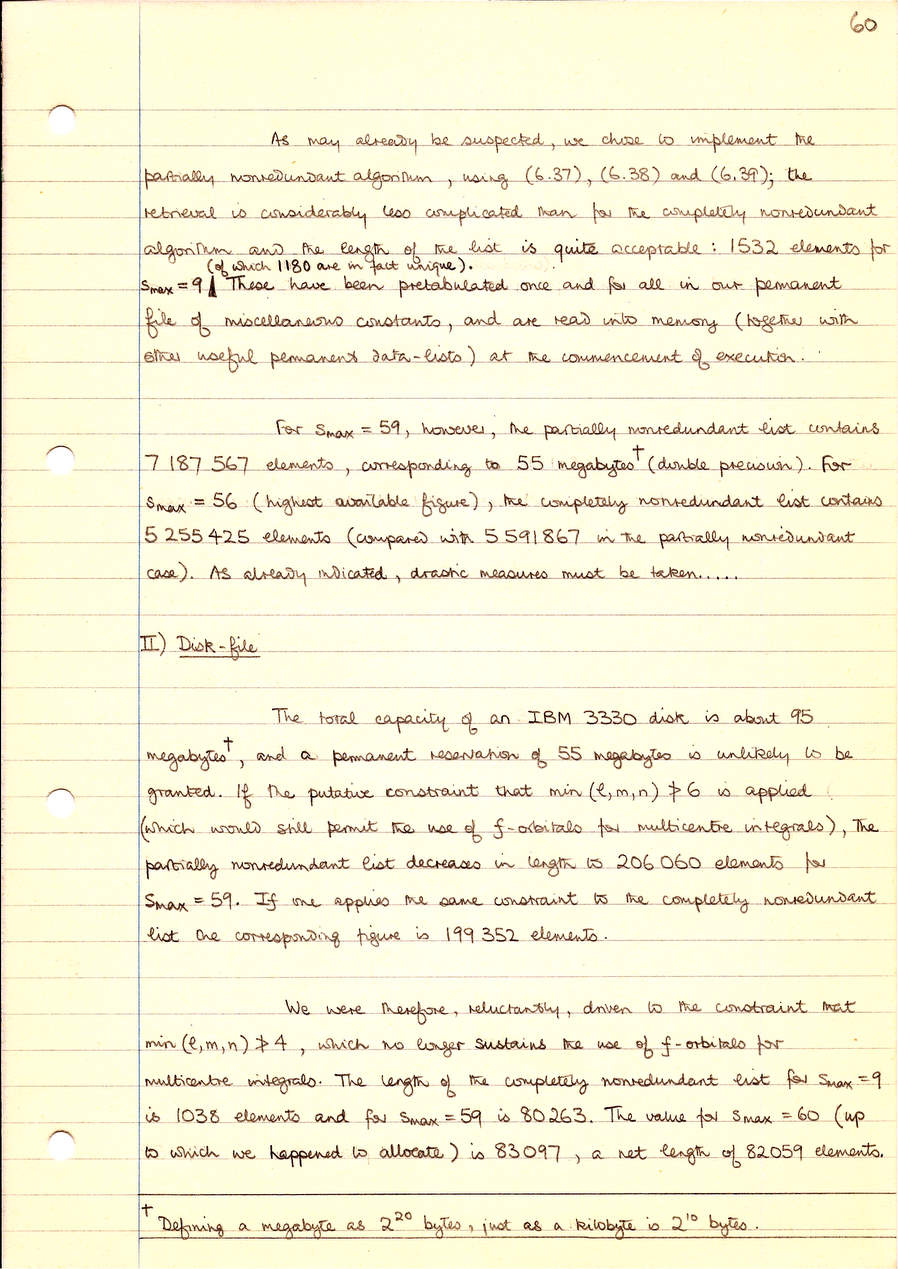 60
As may already be suspected, we chose to implement the
partially nonredundant algorithm, using (6.37), (6.38) and (6.39); the
retrieval is considerably less complicated than for the completely nonredundant
algorithm and the length of the list is quite acceptable : 1532 elements for
(of which 1180 are in fact unique).
smax = 9. These have been pretabulated once and for all in our permanent
file of miscellaneous constants, and are read into memory (together with
other useful permanent data-lists) at the commencement of execution.
For smax = 59, however, the partially nonredundant list contains
7 187 567 elements, corresponding to 55 megabytes† (double precision). For
smax = 56 (highest available figure), the completely nonredundant list contains
5 255 425 elements (compared with 5 591 867 in the partially nonredundant
case). As already indicated, drastic measures must be taken.....
II) Disk-file
The total capacity of an IBM 3330 disk is about 95
megabytes†, and a permanent reservation of 55 megabytes is unlikely to be
granted. If the putative constraint that min (l,m,n) ≯ 6 is applied
(which would still permit the use of f-orbitals for multicentre integrals), the
partially nonredundant list decreases in length to 206 060 elements for
smax = 59. If one applies the same constraint to the completely nonredundant
list the corresponding figure is 199 352 elements.
We were therefore, reluctantly, driven to the constraint that
min (l,m,n) ≯ 4, which no longer sustains the use of f-orbitals for
multicentre integrals. The length of the completely nonredundant list for smax = 9
is 1038 elements and for smax = 59 is 80 263. The value for smax = 60 (up
to which we happened to allocate) is 83 097, a net length of 82 059 elements.
† Defining a megabyte as 2²⁰ bytes, just as a kilobyte is 2¹⁰ bytes.